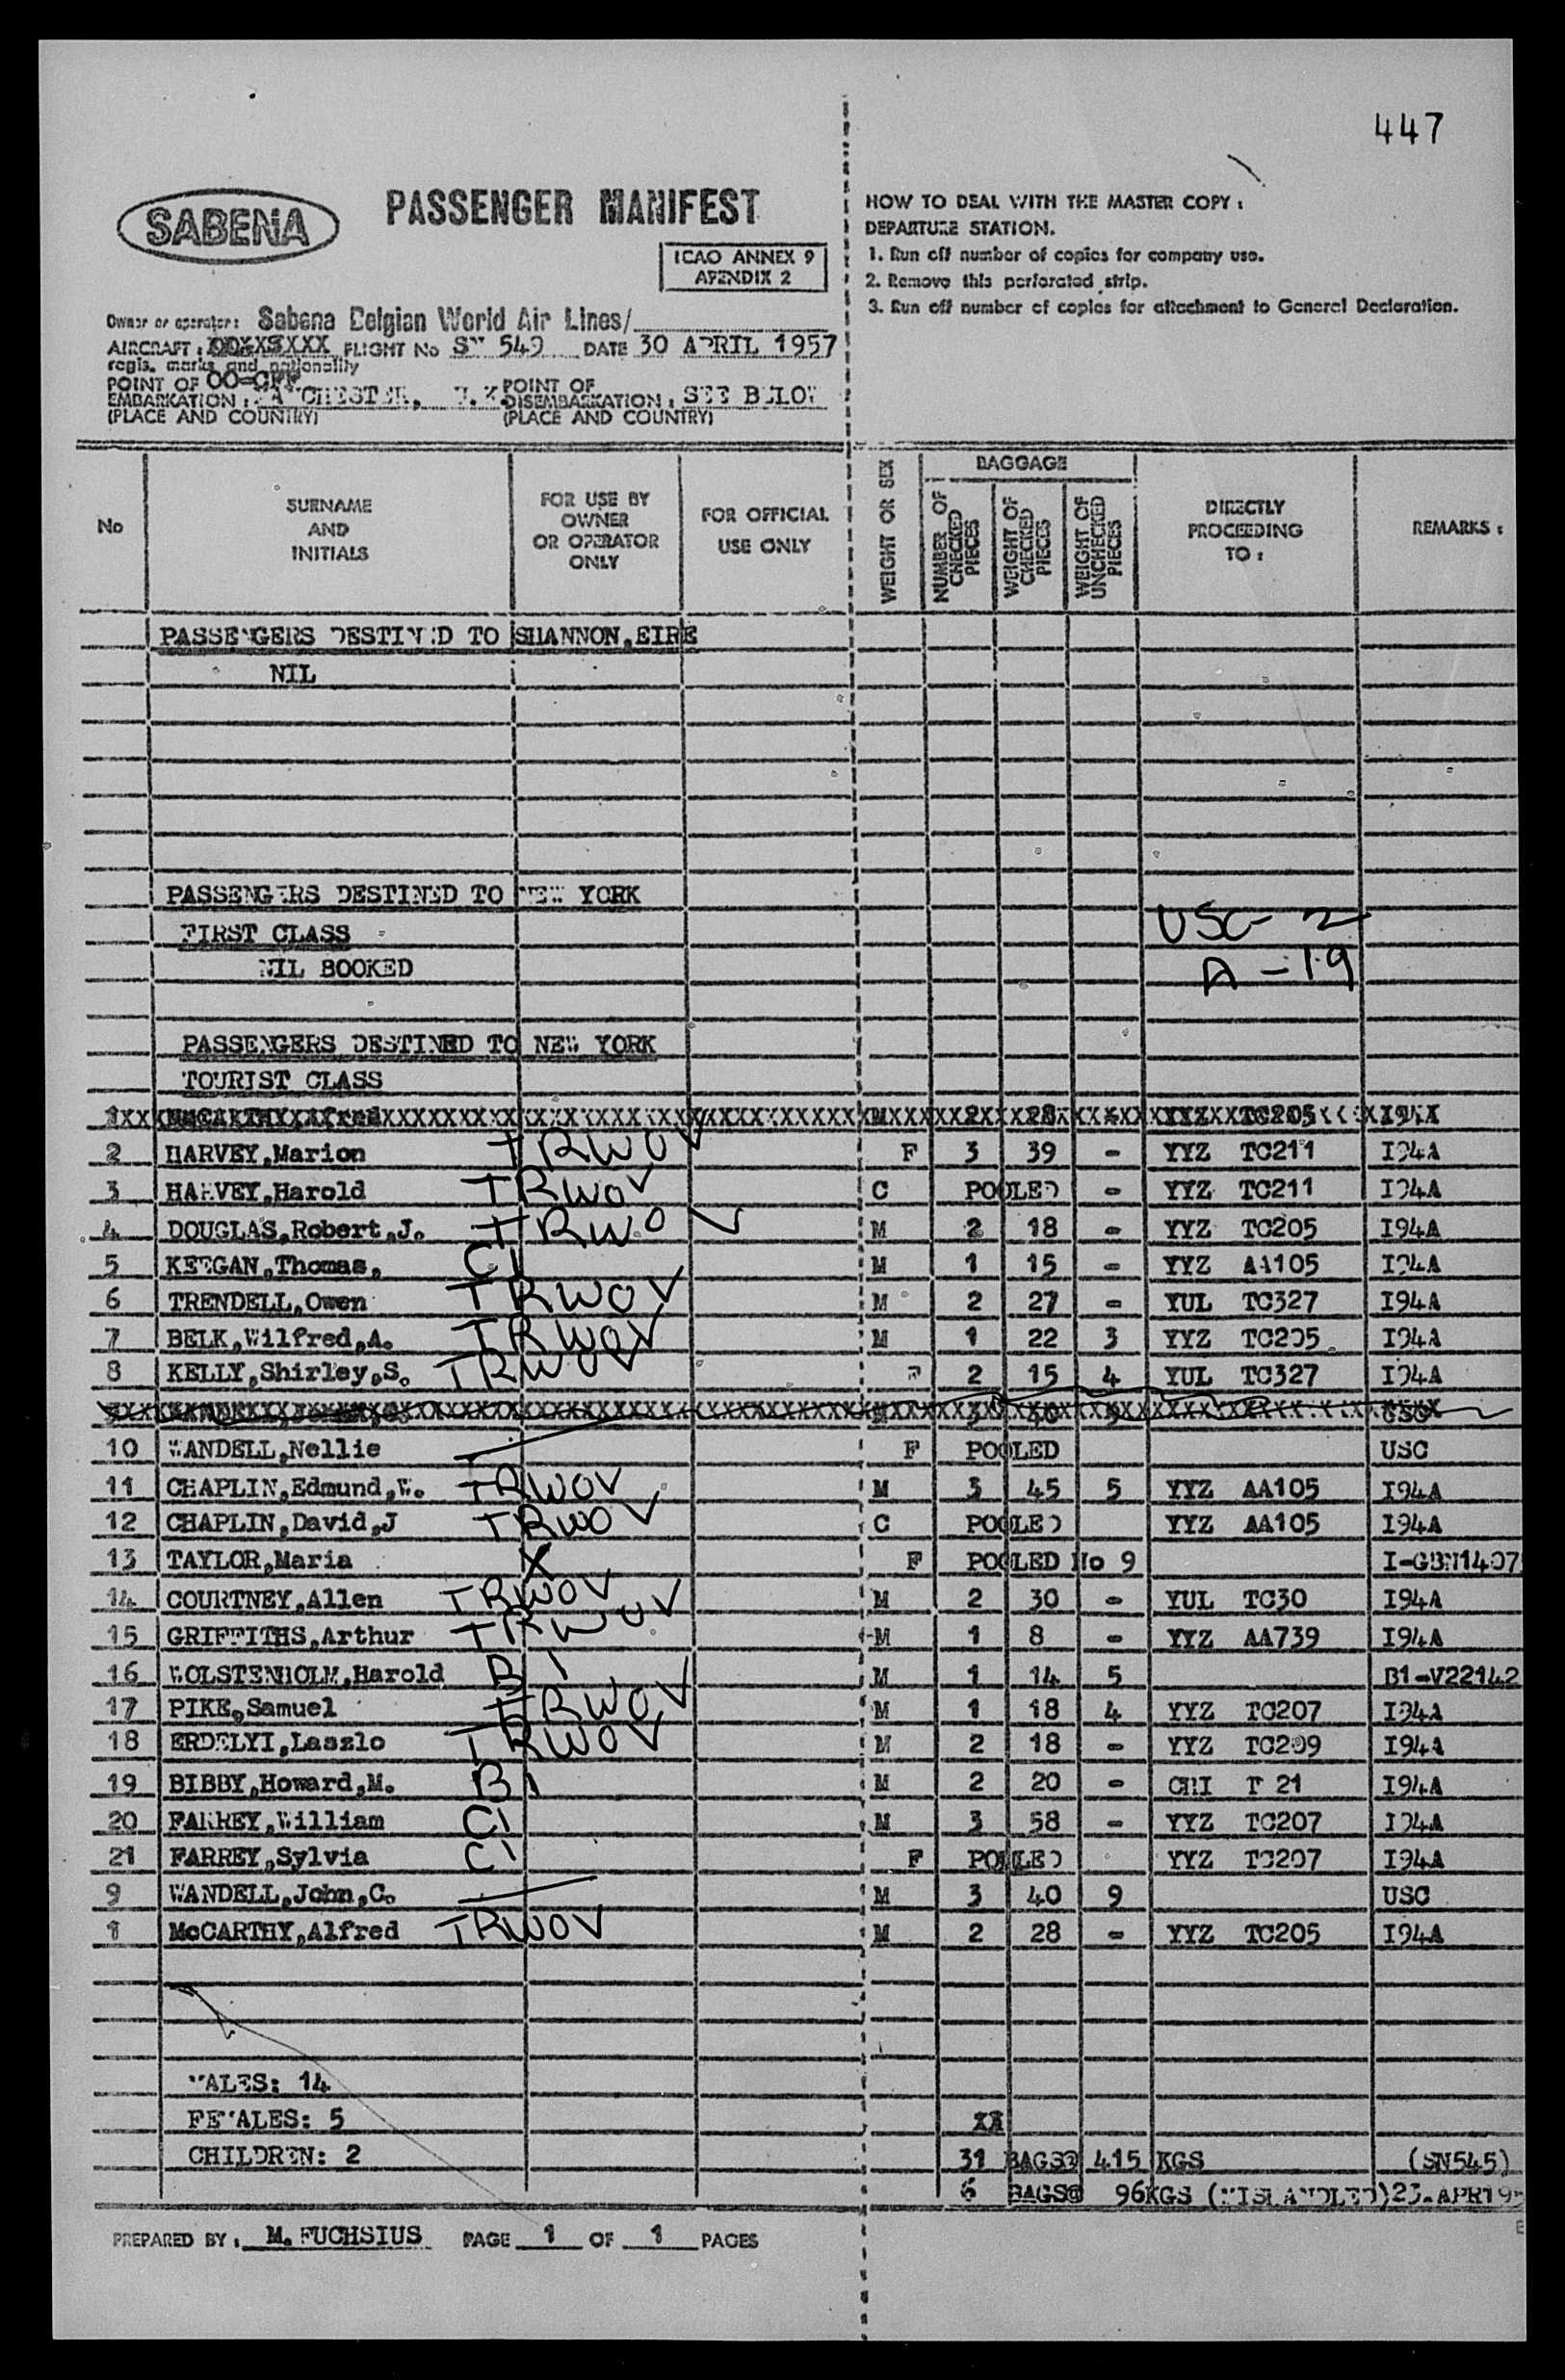 447
SABENA
PASSENGER MANIFEST
ICAO ANNEX 9
APENDIX 2
HOW TO DEAL WITH THE MASTER COPY :
DEPARTURE STATION.
1. Run off number of copies for company use.
2. Remove this perforated strip.
3. Run off number of copies for attachment to General Declaration.
Owner or operator: Sabena Belgian World Air Lines/
AIRCRAFT : FLIGHT No SN 549 DATE 30 APRIL 1957
regis. marks and nationality
POINT OF EMBARKATION : MANCHESTER, U.K. POINT OF DISEMBARKATION : SEE BELOW
(PLACE AND COUNTRY) (PLACE AND COUNTRY)
No SURNAME AND INITIALS FOR USE BY OWNER OR OPERATOR ONLY FOR OFFICIAL USE ONLY WEIGHT OR SEX BAGGAGE NUMBER OF CHECKED PIECES WEIGHT OF CHECKED PIECES WEIGHT OF UNCHECKED PIECES DIRECTLY PROCEEDING TO : REMARKS :
PASSENGERS DESTINED TO SHANNON,EIRE
NIL
PASSENGERS DESTINED TO NEW YORK
USC- 2
FIRST CLASS
A - 19
NIL BOOKED
PASSENGERS DESTINED TO NEW YORK
TOURIST CLASS
1 McCARTHY Alfred M 2 28 - YYZ TC205 I94A
2 HARVEY,Marion TRWOV F 3 39 - YYZ TC211 I94A
3 HARVEY,Harold TRWOV C POOLED - YYZ TC211 I94A
4 DOUGLAS,Robert,J. TRWOV M 2 18 - YYZ TC205 I94A
5 KEEGAN,Thomas, C1 M 1 15 - YYZ AA105 I94A
6 TRENDELL,Owen TRWOV M 2 27 - YUL TC327 I94A
7 BELK,Wilfred,A. TRWOV M 1 22 3 YYZ TC205 I94A
8 KELLY,Shirley,S. TRWOV F 2 15 4 YUL TC327 I94A
10 WANDELL,Nellie F POOLED USC
11 CHAPLIN,Edmund,W. TRWOV M 3 45 5 YYZ AA105 I94A
12 CHAPLIN,David,J TRWOV C POOLED YYZ AA105 I94A
13 TAYLOR,Maria X F POOLED No 9 I-GBN1407
14 COURTNEY,Allen TRWOV M 2 30 - YUL TC30 I94A
15 GRIFFITHS,Arthur TRWOV M 1 8 - YYZ AA739 I94A
16 WOLSTENHOLM,Harold B1 M 1 14 5 B1-V22142
17 PIKE,Samuel TRWOV M 1 18 4 YYZ TC207 I94A
18 ERDELYI,Laszlo TRWOV M 2 18 - YYZ TC209 I94A
19 BIBBY,Howard,M. B1 M 2 20 - CHI 21 I94A
20 FARREY,William C1 M 3 58 - YYZ TC207 I94A
21 FARREY,Sylvia C1 F POOLED YYZ TC207 I94A
9 WANDELL,John,C. M 3 40 9 USC
1 McCARTHY,Alfred TRWOV M 2 28 - YYZ TC205 I94A
MALES: 14
FEMALES: 5
CHILDREN: 2 31 BAGS@ 415 KGS (SN545)
6 BAGS@ 96KGS (MISHANDLED)23.APR195
PREPARED BY : M. FUCHSIUS PAGE 1 OF 1 PAGES